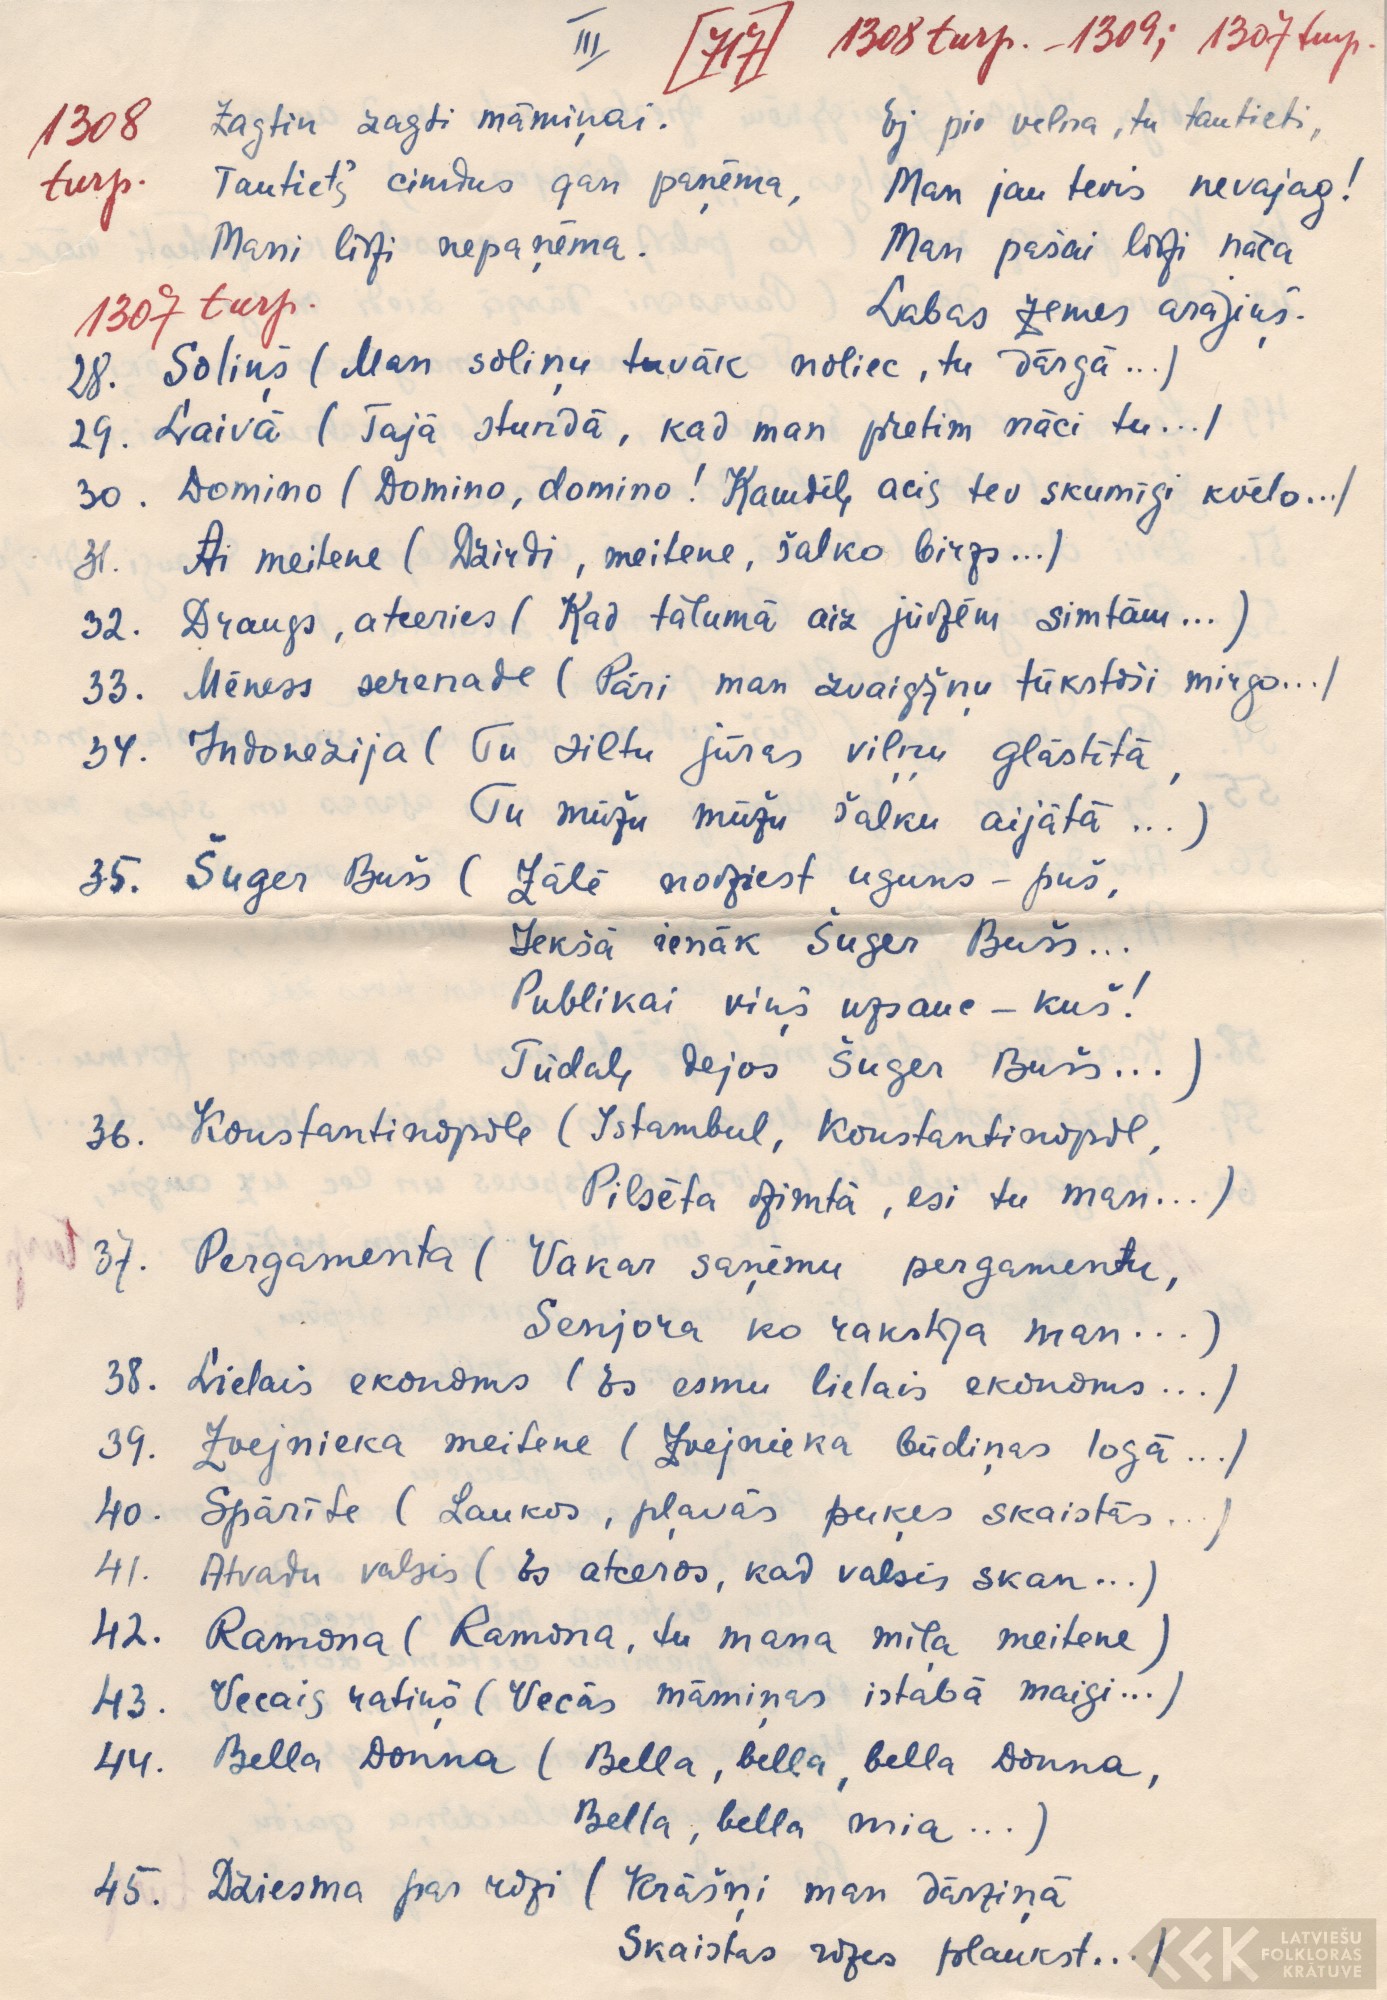 III [717] 1308 turp. – 1309; 1307 turp.
1308
turp.
Zagtin zagti māmiņai.
Tautiets cimdus gan paņēma,
Mani līdzi nepaņēma.
Ej pie velna, tu tautieti,
Man jau tevis nevajag!
Man pašai līdzi nāca
Labas zemes arājiņš.
1307 turp.
28. Soliņš (Man soliņu tuvāk noliec, tu dārgā...)
29. Laivā (Tajā stundā, kad man pretim nāci tu...)
30. Domino (Domino, domino! Kamdēļ acis tev skumīgi kvēlo...)
31. Ai meitene (Dzirdi, meitene, šalko birzs...)
32. Draugs, atceries (Kad tālumā aiz jūdzēm simtām...)
33. Mēness serenade (Pāri man zvaigžņu tūkstoši mirgo...)
34. Indonezija (Tu siltu jūras viļņu glāstītā,
Tu mūžu mūžu šalku aijātā...)
35. Šuger Bušs (Zālē nodziest uguns – puš,
Iekšā ienāk Šuger Bušs...
Publikai viņš uzsauc – kuš!
Tūdaļ dejos Šuger Bušs...)
36. Konstantinopole (Istambul, Konstantinopol,
Pilsēta dzimtā, esi tu man...)
37. Pergamenta (Vakar saņēmu pergamentu,
Senjora ko rakstīja man...)
38. Lielais ekonoms (Es esmu lielais ekonoms...)
39. Zvejnieka meitene (Zvejnieka būdiņas logā...)
40. Spārīte (Laukos, pļavās puķes skaistās...)
41. Atvadu valsis (Es atceros, kad valsis skan...)
42. Ramona (Ramona, tu mana mīļa meitene)
43. Vecais ratiņš (Vecās māmiņas istabā maigi...)
44. Bella Donna (Bella, bella, bella Donna,
Bella, bella mia...)
45. Dziesma par rozi (Krāšņi man dārziņā
Skaistas rozes plaukst...)
LATVIEŠU
FOLKLORAS
KRĀTUVE